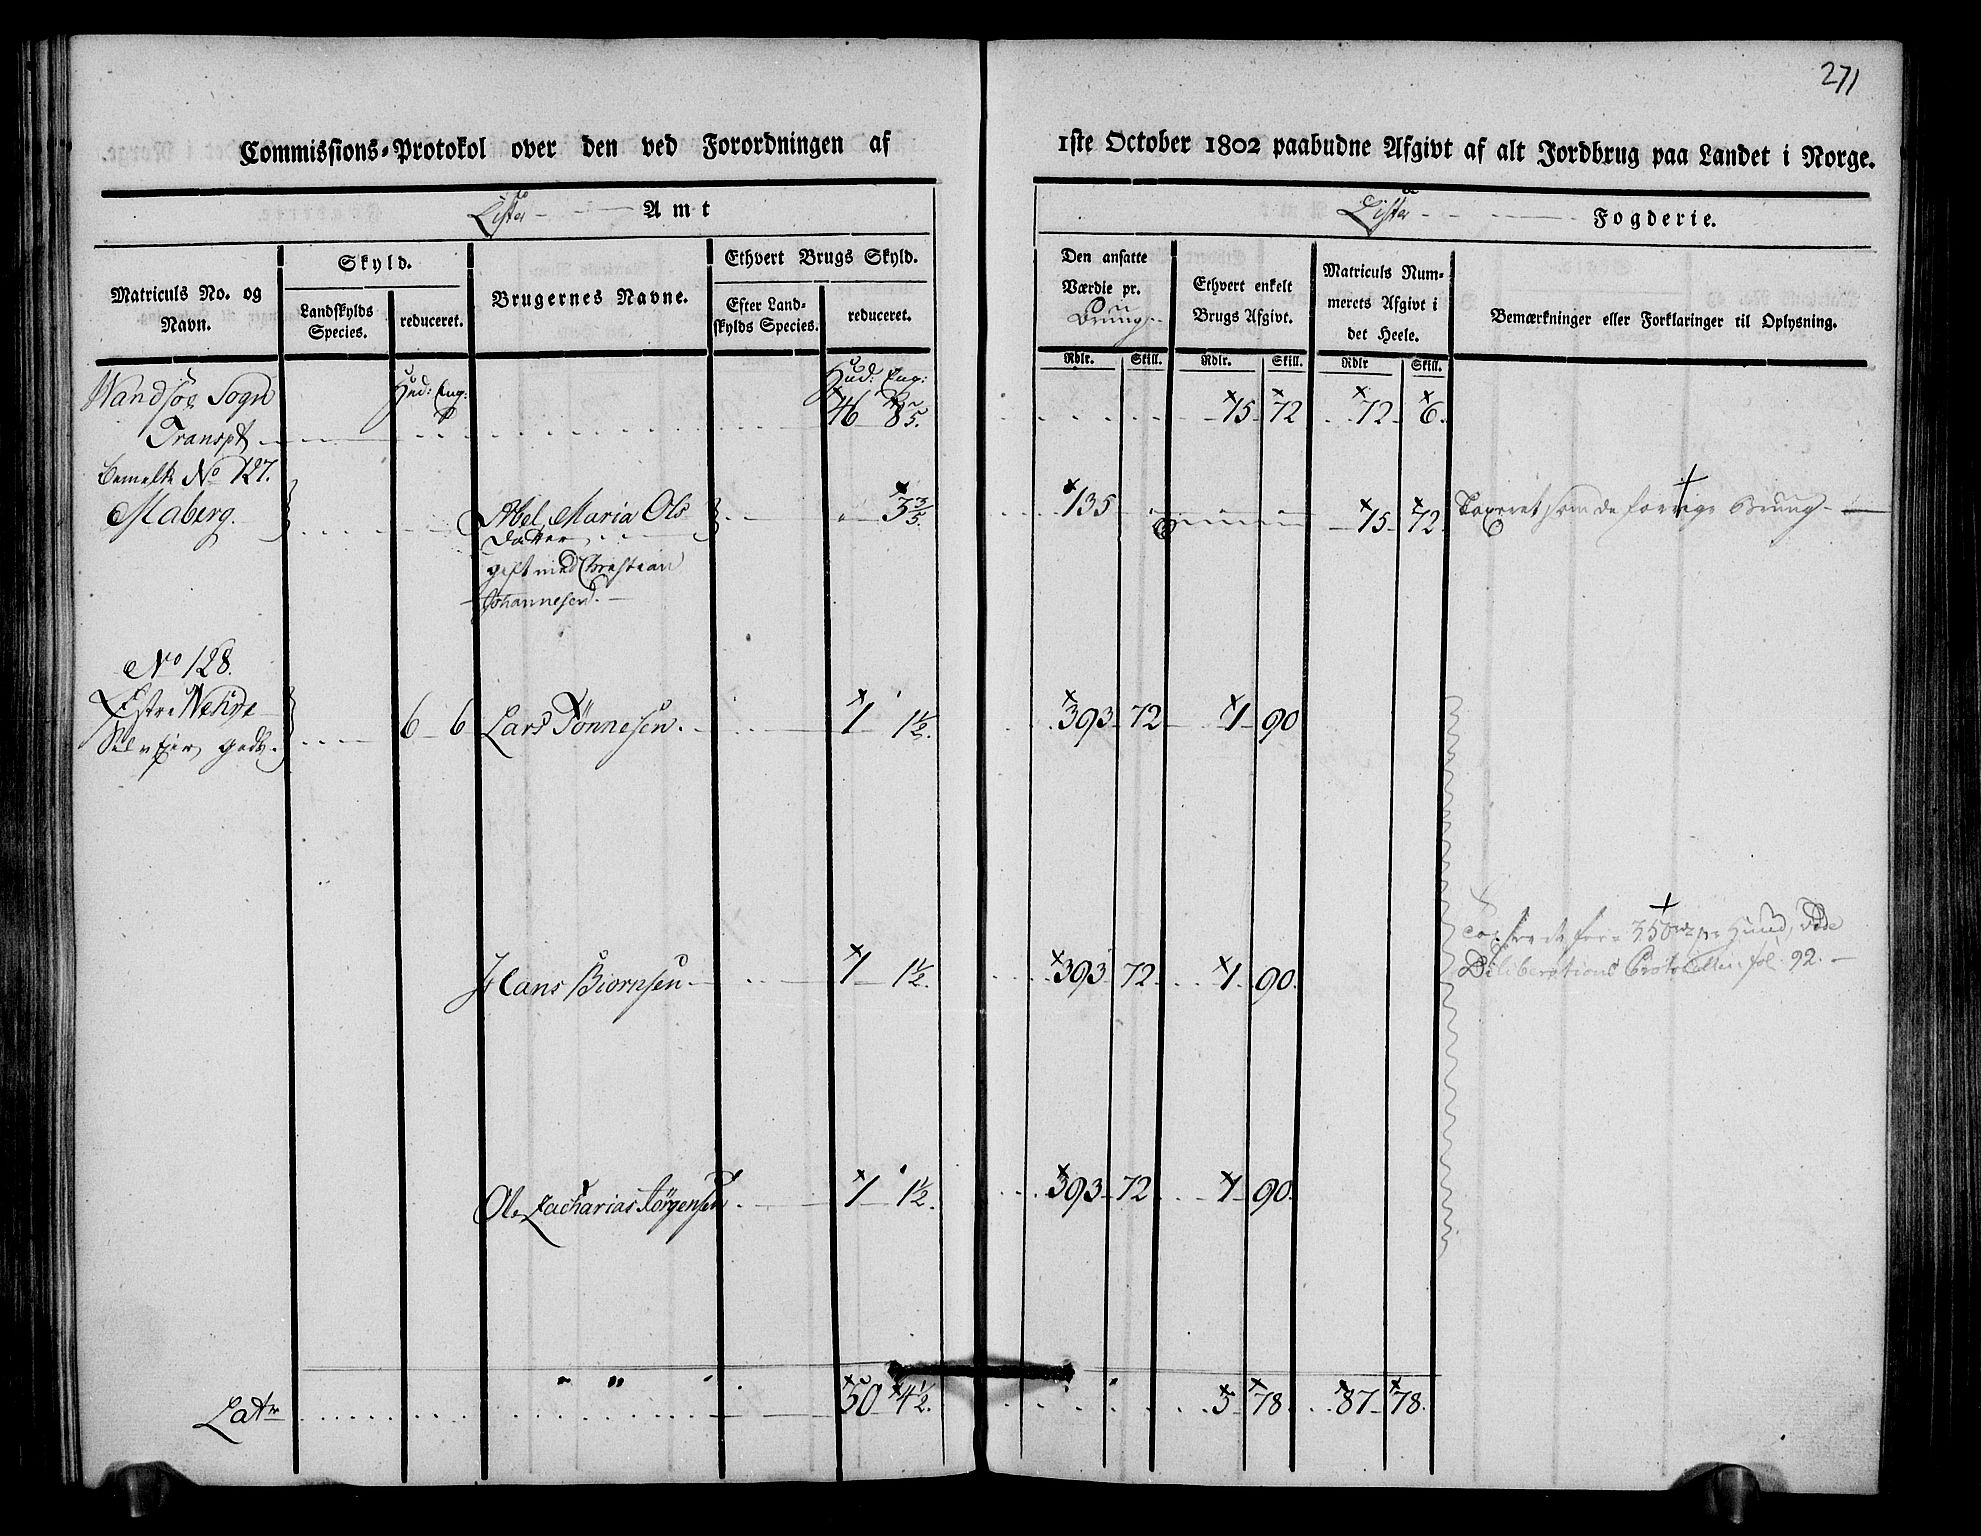 271
Commissions-Protokol over den ved Forordningen af 1ste October 1802 paabudne Afgivt af alt Jordbrug paa Landet i Norge.
Lister Amt
Lister Fogderie.
Matriculs No. og Navn.
Skyld.
Landskylds Species.
reduceret.
Brugernes Navne.
Ethvert Brugs Skyld.
Efter Landskylds Species.
reduceret.
Den ansatte Værdie pr. Brug
Rdlr. Skill.
Ethvert enkelt Brugs Afgivt.
Rdlr. Skill.
Matriculs Nummerets Afgivt i det Heele.
Rdlr Skill.
Bemærkninger eller Forklaringer til Oplysning.
Sogn Hud: Eng: Hud: Eng:
Transpt 46 15 72 72 6.
No 127.
Maberg. Abel Maria Ols 3 3/5 135 15 72
Datter
gift med Christian
Johannesen.
No 128.
6 6 Lars Tønnesen. 1 1½. 393 72 1 90
Hans Biørnsen 1 1½. 393 72 1 90.
Deliberations Protocollen fol. 92.
Ole Zacharias Jørgensen. 1 1½. 393 72 1 90.
Latr 50 4½. 5 78 87 78.